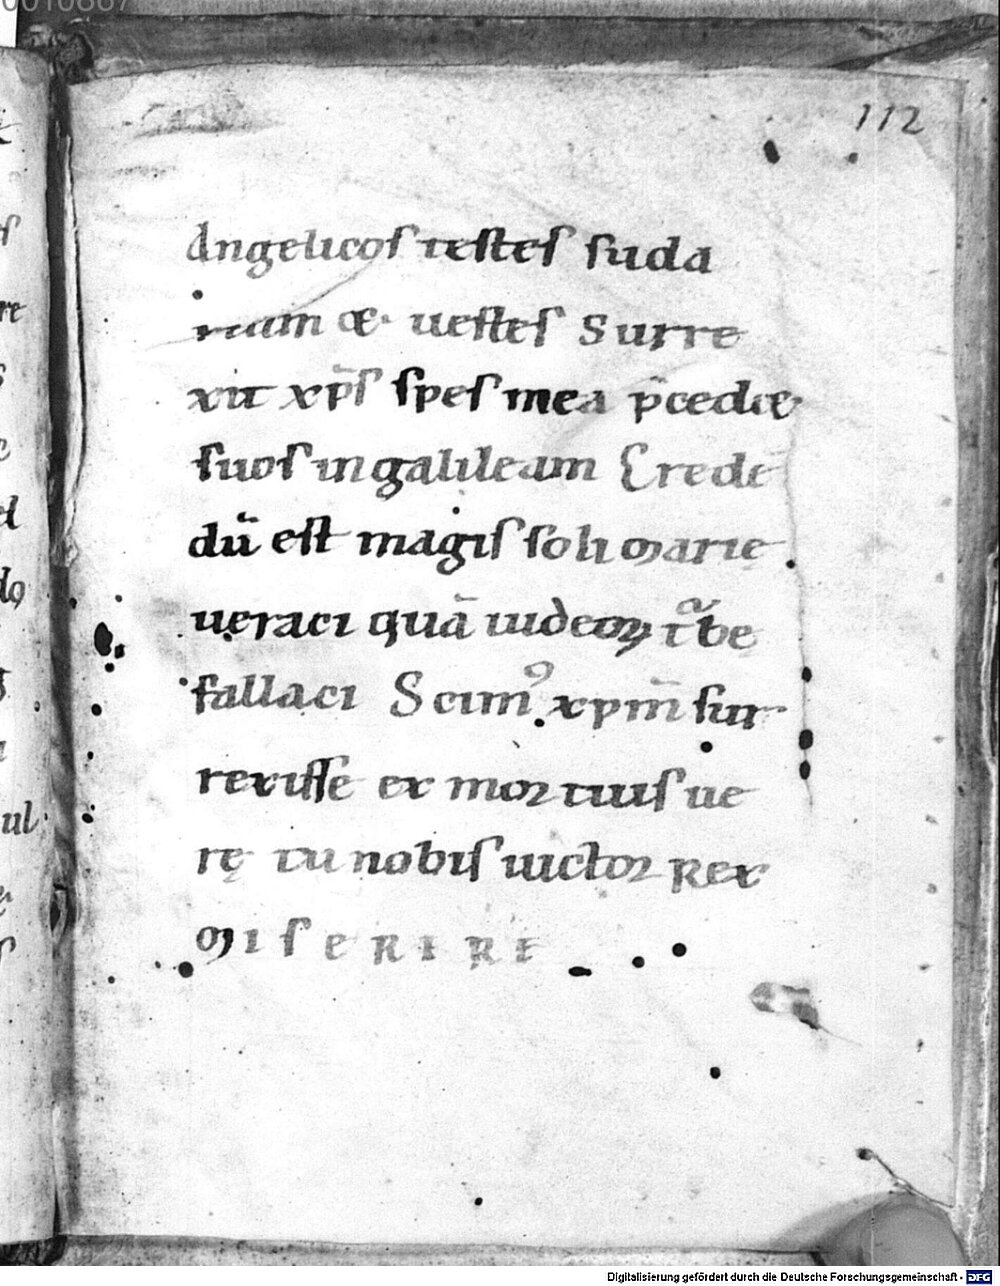 0010887
112
Angelicos testes suda
rium & uestes Surre
xit xp̄s spes mea p̄ced&
suos in galileam Crede
dū est magis soli marię
ueraci quā iudeoꝝ tͣbe
fallaci Scimꝰ xpm̄ sur
rexisse ex mortuis ue
rę tu nobis uictor Rex
MISERERE
ul
Digitalisierung gefördert durch die Deutsche Forschungsgemeinschaft - DFG